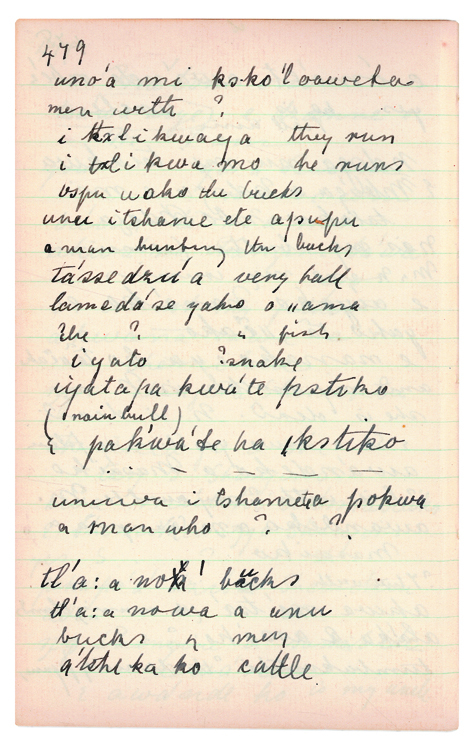 479
unóá mi kskóloaweha
men with ?
i kxlikwaya they run
i txlikwa mo he runs
vspu uako the bucks
unu itshanue ete apupu
a man hunting the bucks
tássedzúa very ball
lamedáse yaho o "ama
the ? " fish
iyato ? snake
iyatapa kwáte pstiko
(rainbull)
{ pakwáte ha kstiko
unuwa i tshameta pokwa
a man who ? ?
tl'a: a noxá' bucks
tl'a: a nowa a unu
bucks n men
átoheka ko cattle